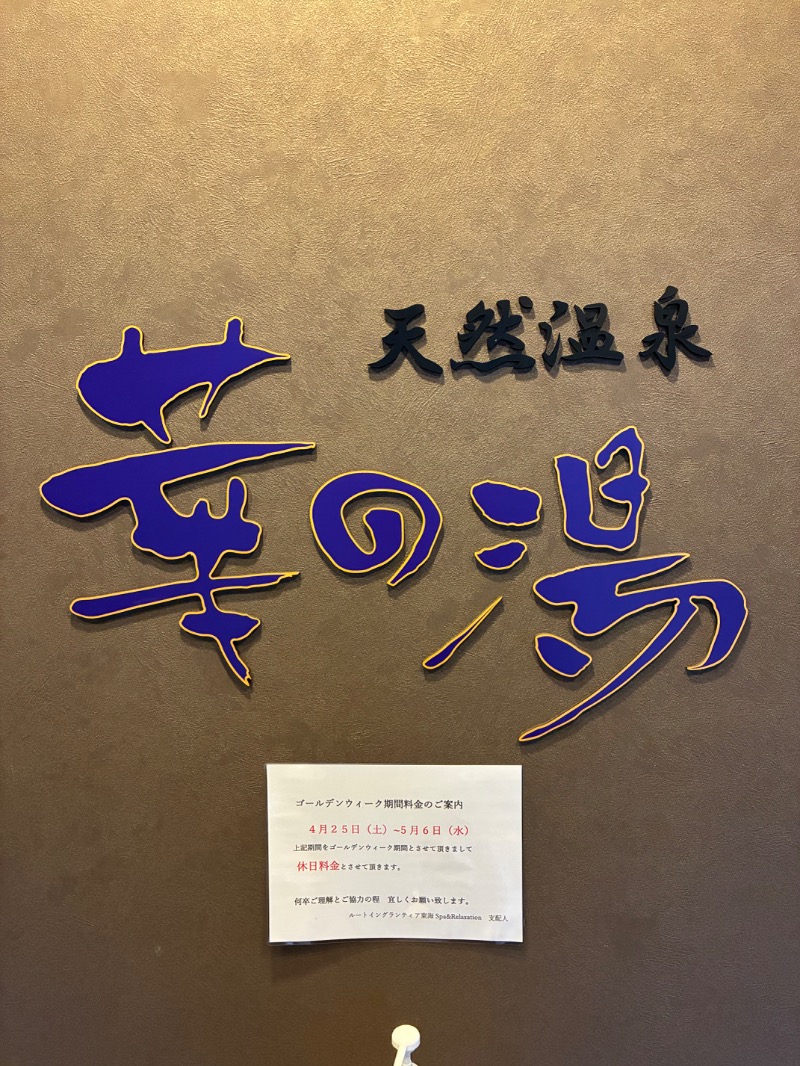 天然温泉
華の湯
ゴールデンウィーク期間料金のご案内
4月25日（土）~5月6日（水）
上記期間をゴールデンウィーク期間とさせて頂きまして
休日料金とさせて頂きます。
何卒ご理解とご協力の程　宜しくお願い致します。
ルートイングランティア東海 Spa&Relaxation　支配人